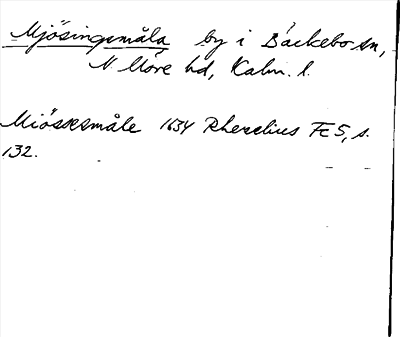 Mjösingsmåla by i Bäckebo sn,
N Möre hd, Kalm. l.
Miössesmåle 1634 Rhezelius FE 5, s.
132.